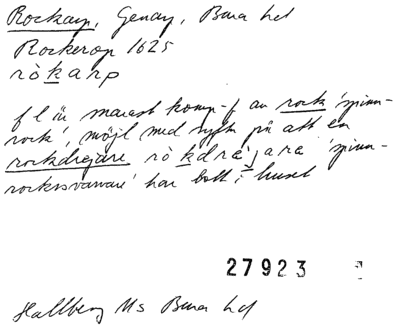 Rockarp, Genarp, Bara hd
Rockerop 1625
ròkarp
f l är snarast komp-f av rock 'spinn-
rock', möjl med syftn på att en
rockdrejare ròkdrèjara 'spinn-
rockssvarvare' har bott i huset
27923
Hallberg Ms Bara hd